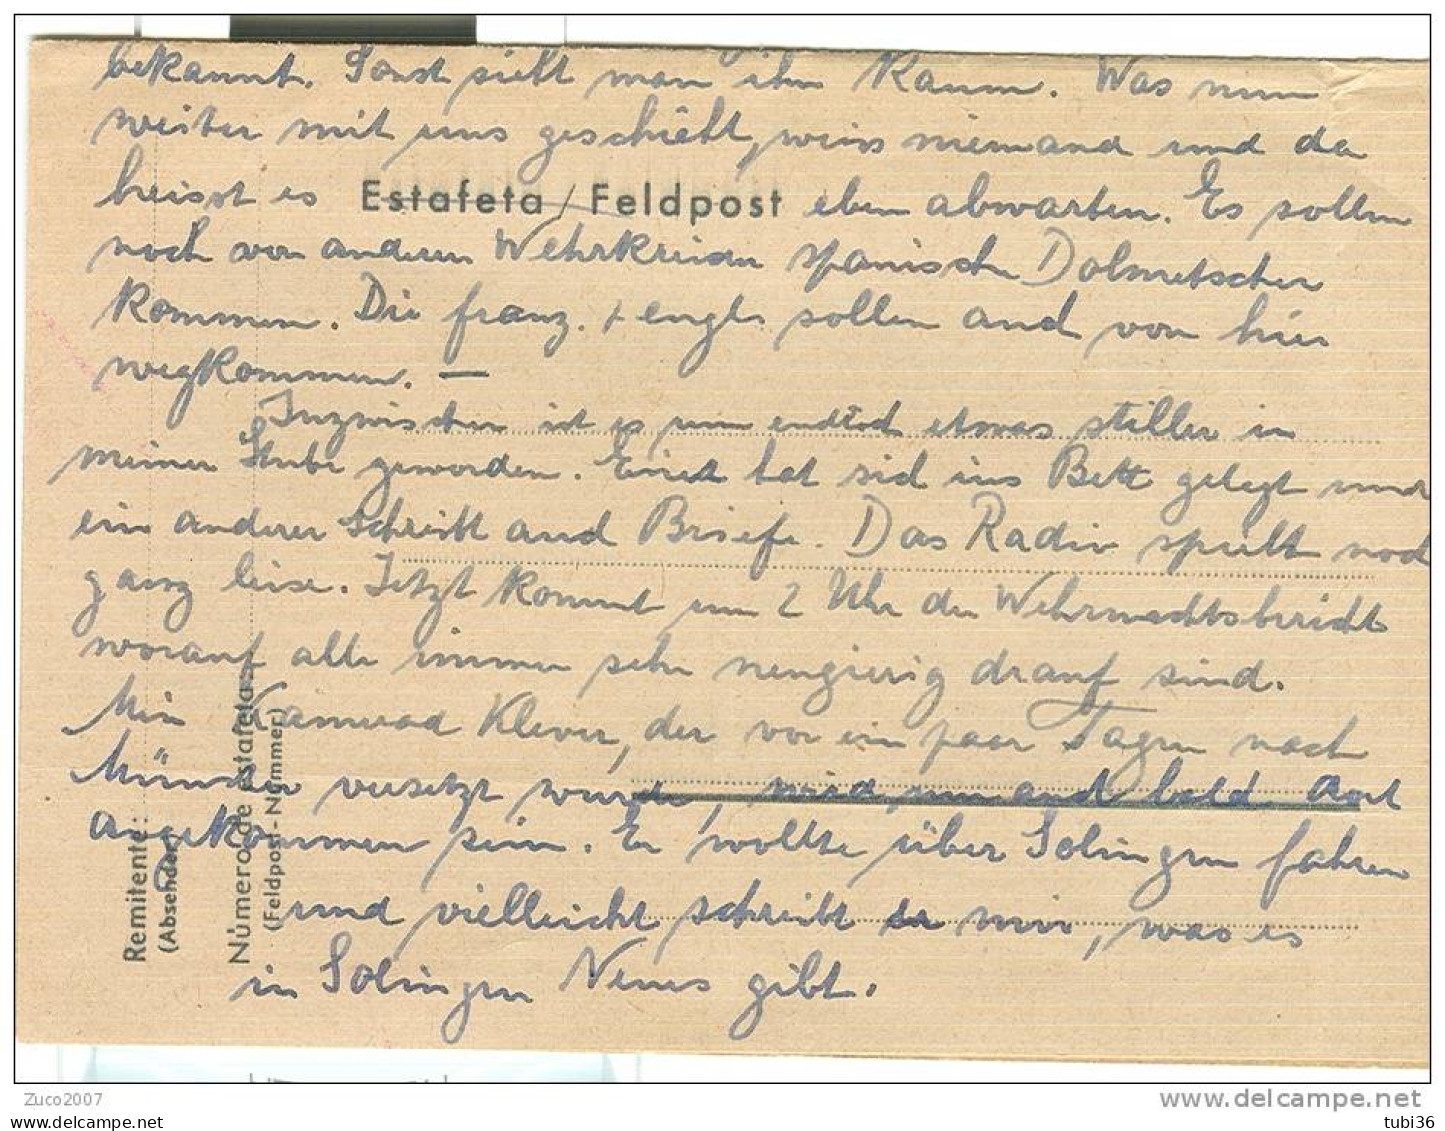 bekannt. Sonst sieht man ihn kaum. Was nun
weiter mit uns geschieht, weiss niemand und da
heisst es Estafeta / Feldpost eben abwarten. Es sollen
noch von anderen Wehrkreisen spanische Dolmetscher
kommen. Die franz. + engl. sollen auch von hier
wegkommen. —
Inzwischen ist es nun endlich etwas stiller in
meiner Stube geworden. Einer hat sich ins Bett gelegt und
ein anderer schreibt auch Briefe. Das Radio spielt noch
ganz leise. Jetzt kommt um 2 Uhr der Wehrmachtsbericht
worauf alle immer sehr neugierig drauf sind.
Mein Kamerad Klever, der vor ein paar Tagen nach
Münster versetzt wurde, wird nun auch bald dort
angekommen sein. Er wollte über Solingen fahren
und vielleicht schreibt er mir, was es
in Solingen Neues gibt.
Remitente:
(Absender)
Número de estafeta:
(Feldpost-Nummer)
Zuco2007
www.delcampe.net
myoldpostcard.com
tubi36